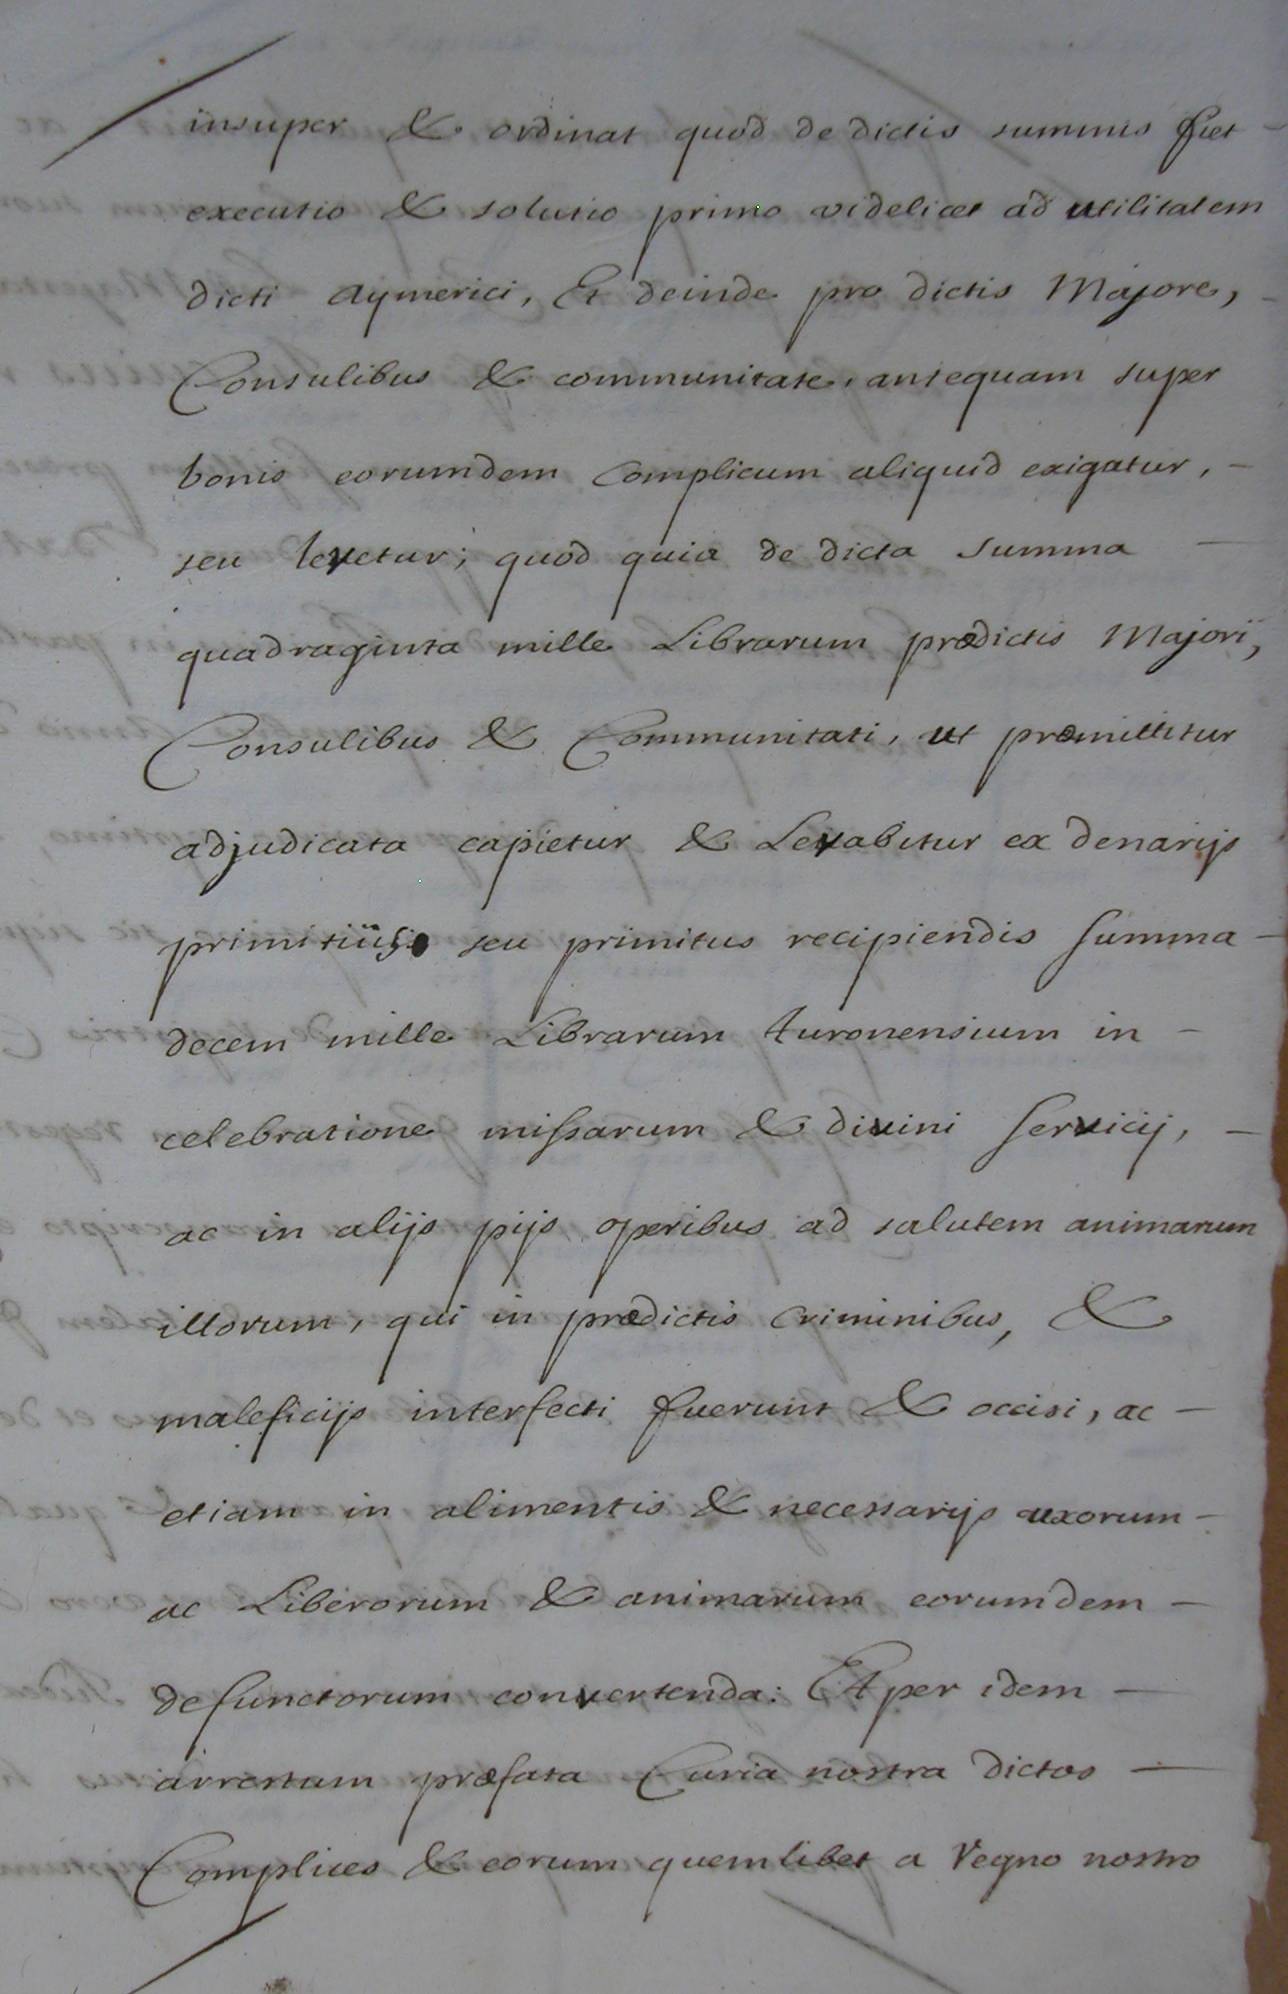 insuper & ordinat quod de dictis summis fiet –
executio & solutio primo videlicet ad utilitatem
dicti Aymerici, Et deinde pro dictis Majore, –
Consulibus & communitate, antequam super
bonis eorumdem complicum aliquid exigatur, –
seu levetur; quod quia de dicta summa –
quadraginta mille Librarum prædictis Majori,
Consulibus & Communitati, ut præmittitur
adjudicata capietur & Levabitur ex denarijs
primitiüs seu primitus recipiendis summa –
decem mille Librarum turonensium in –
celebratione missarum & divini servicij, –
ac in alijs pijs operibus ad salutem animarum
illorum, qui in prædictis criminibus, &
maleficijs interfecti fuerunt & occisi, ac –
etiam in alimentis & necessarijs uxorum –
ac Liberorum & animarum eorumdem –
defunctorum convertenda: Et per idem –
arrestum præfata Curia nostra dictos –
Complices & eorum quemlibet a regno nostro